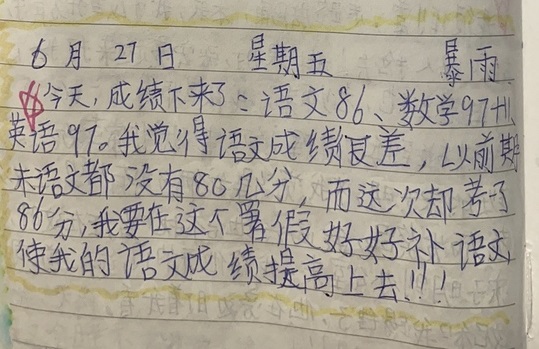 6月27日 星期五 暴雨
今天,成绩下来了:语文86、数学97和
英语97。我觉得语文成绩真差,以前期
末语文都没有80几分,而这次却考了
86分,我要在这个暑假好好补语文,
使我的语文成绩提高上去!!!